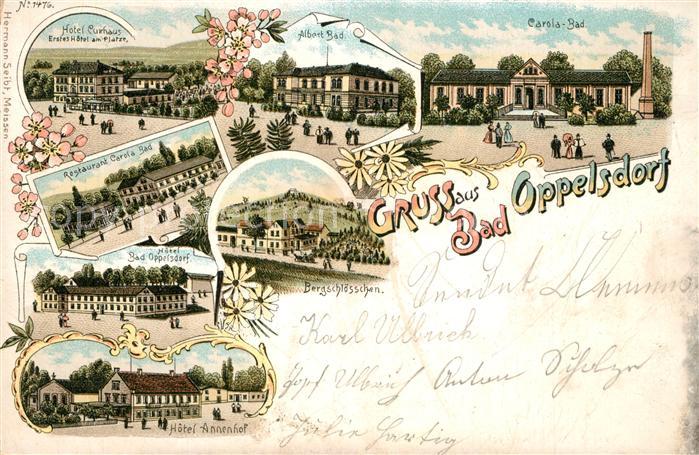 No. 1476.
Hermann Seibt, Meissen
Hotel Curhaus
Erstes Hôtel am Platze.
Albert Bad.
Carola-Bad.
Restaurant Carola Bad
Gruss aus
Bad Oppelsdorf
Hôtel
Bad Oppelsdorf.
Bergschlösschen.
Hôtel Annenhof
Sendet
Karl Ulbrich
Ulbrich Anton Scholze
Julie Hartig